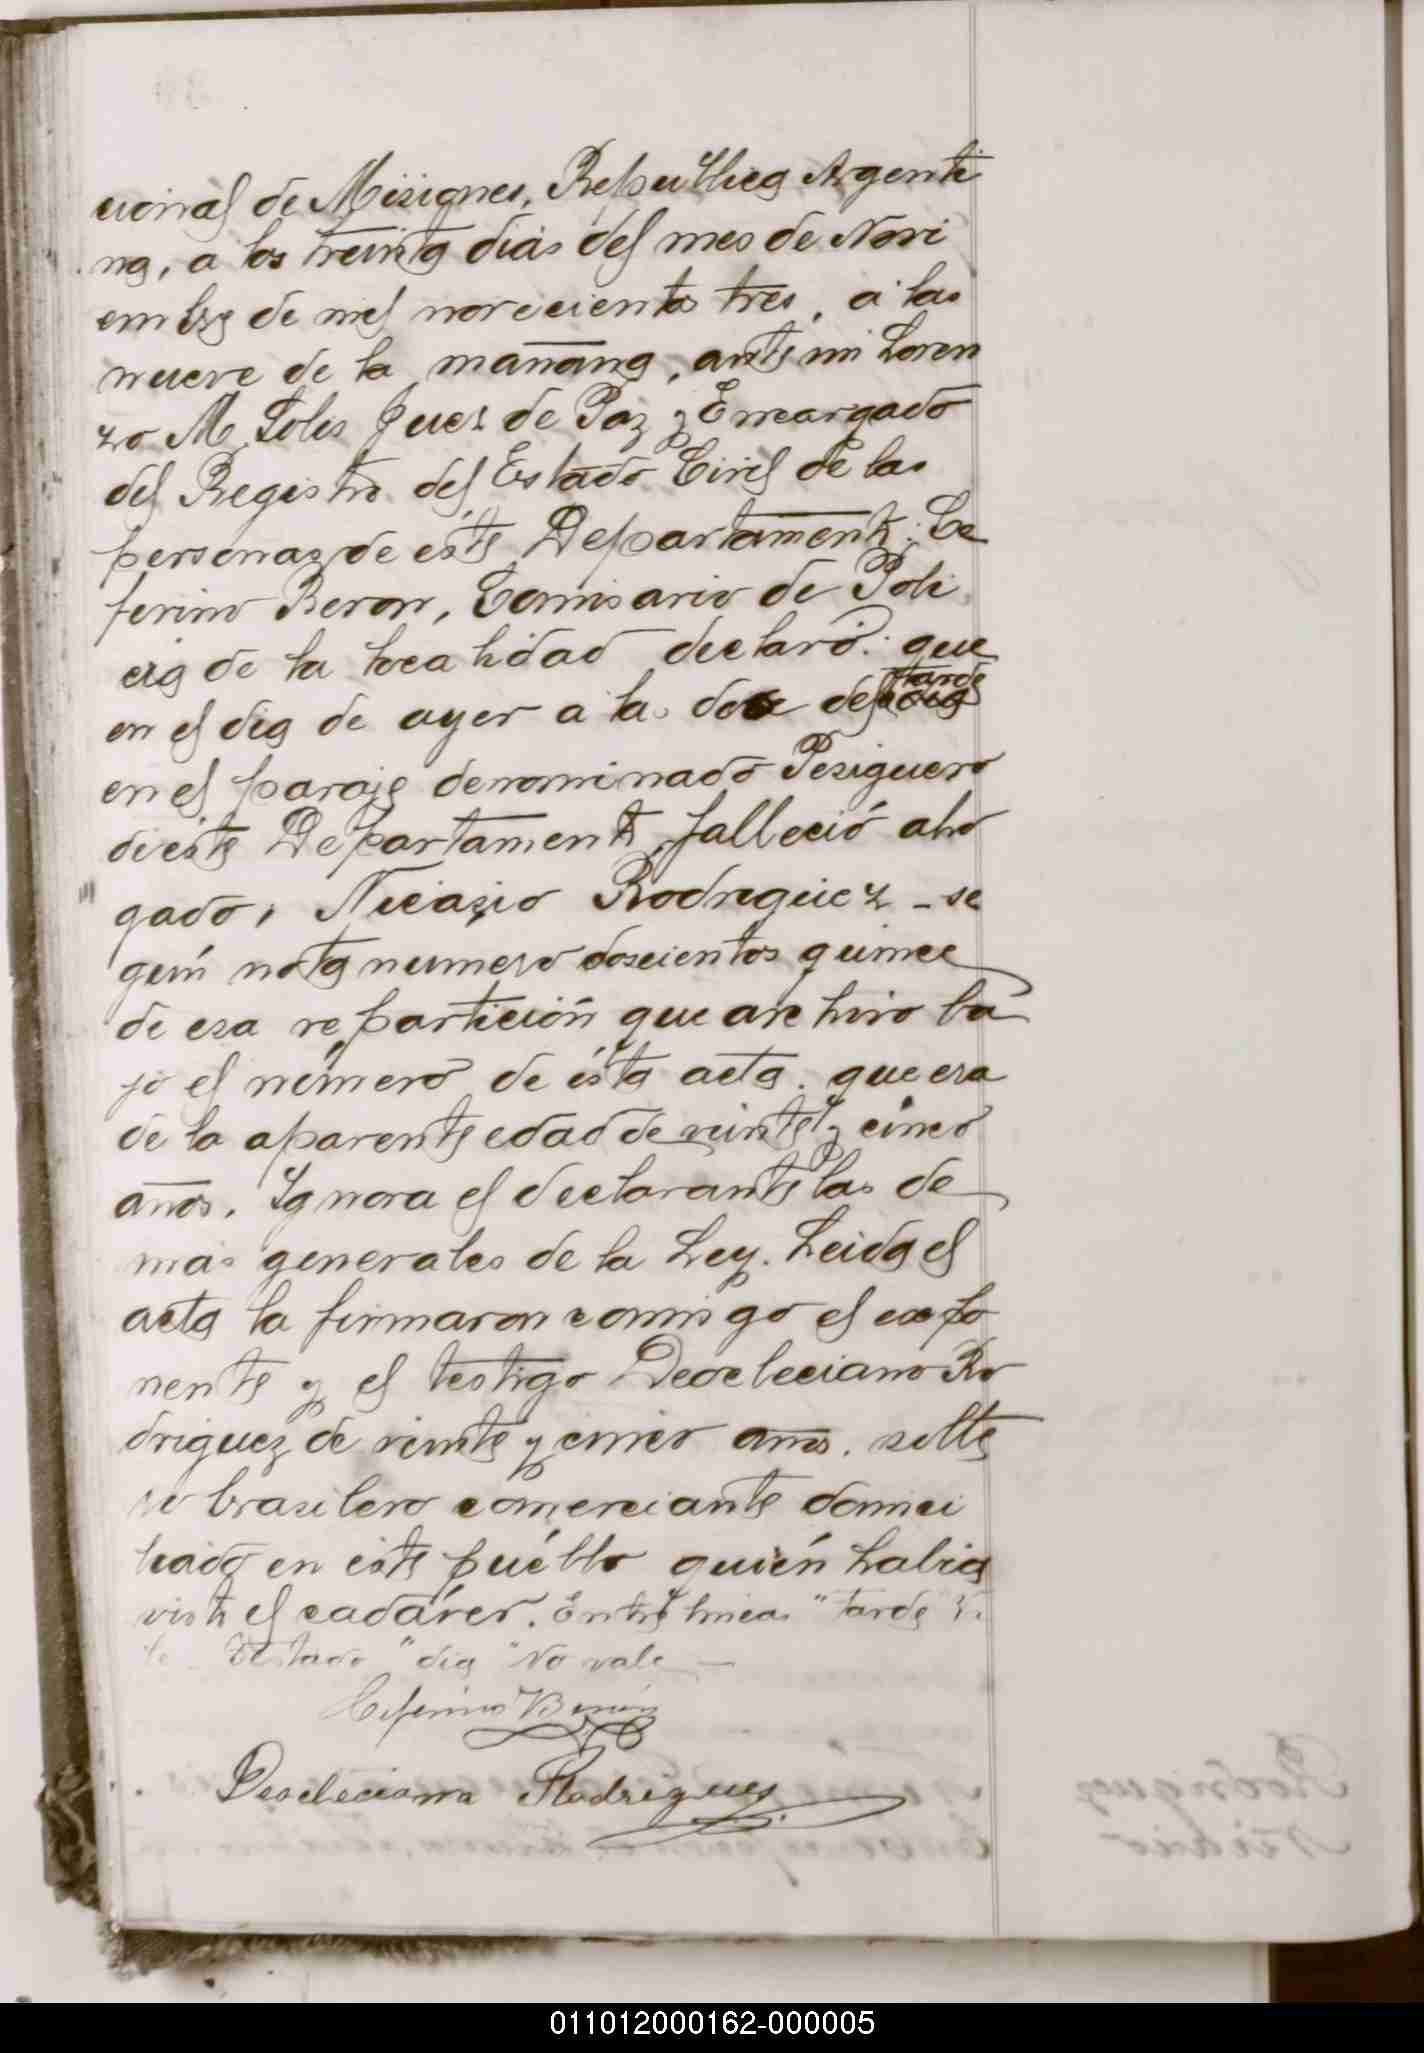 cional de Misiones, República Argenti
na, a los treinta dias del mes de Novi
embre de mil novecientos tres, a las
nueve de la mañana, ante mi Loren
zo M. Solis Juez de Paz y Encargado
del Registro del Estado Civil de las
personas de éste Departamento; Ce
ferino Beron, Comisario de Poli
cia de la localidad declaró: que
tarde
en el dia de ayer a la doce del dia
en el paraje denominado Pesiguero
de éste Departamento, falleció aho
gado, Nicasio Rodreguez - se
gún nota numero doscientos quince
de esa repartición que archivo ba
jo el número de ésta acta. que era
de la aparente edad de veinte y cinco
años. Ignora el declarante las de
mas generales de la Ley. Leida el
acta la firmaron comigo el expo
nente y el testigo Deocleciano Ro
driguez de veinte y cinco años. solte
ro brasilero comerciante domici
liado en éste puéblo quién habia
visto el cadáver. Entre lineas "tarde" V.
le - Testado "dia" No vale -
Ceferino Berón
Deocleciano Rodrigues
Rodriguez
011012000162-000005